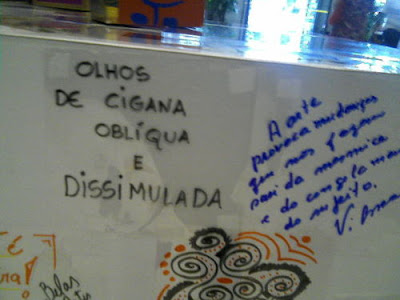 OLHOS
DE CIGANA
OBLÍQUA
E
DISSIMULADA
A arte
provoca mudanças
que nos façam
sair da mesmice
e do
do sujeito.
Belas